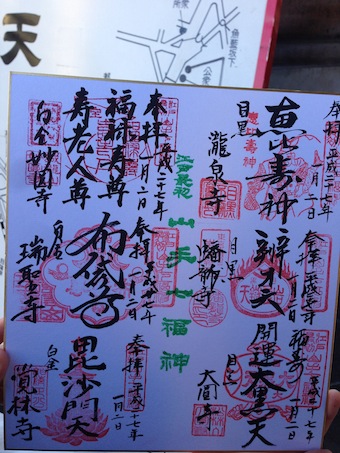 天
魚籃坂下
奉拝 平成二十七年
一月二日
恵比寿神
目黒
瀧泉寺
奉拝 平成二十七年
一月二日
辨才天
目黒
蟠龍寺
平成二十七年
一月二日
開運大黒天
目黒
大圓寺
江戸最初
山手七福神
奉拝 平成二十七年
一月二日
福禄寿尊
寿老人尊
白金妙圓寺
奉拝 平成二十七年
一月二日
布袋尊
白金
瑞聖寺
奉拝 平成二十七年
一月二日
毘沙門天
白金
覚林寺